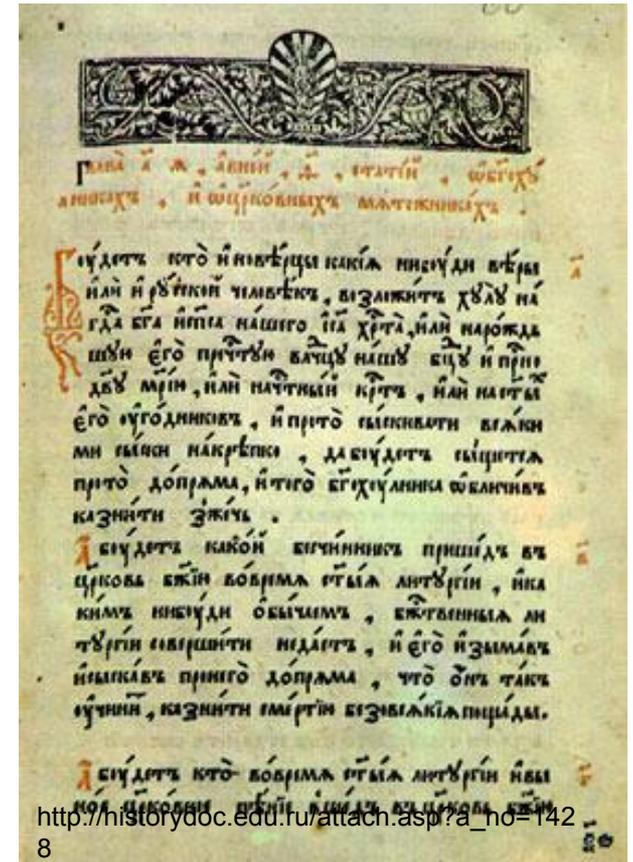 Глава̀ а҃ я, а҆ в ней, ѳ҃, стате́й, ѡ҆ бг҃охꙋ́
лникахъ, и҆ ѡ҆ цр҃ко́вныхъ мѧте́жникахъ.
Бꙋ́детъ кто̀ и҆новѣ́рцы какі́ѧ нибꙋ́ди вѣ́ры
и҆лѝ и҆ рꙋ́ской человѣ́къ, возложи́тъ хꙋлꙋ̀ на́
гд҇а бг҃а и҆ сп҃са на́шего і҆са хр҇та̀, и҆лѝ наро́ждь
шꙋю є҆го̀ пречⷭ҇тꙋю влⷣчцꙋ на́шꙋ бцⷣꙋ и҆ прⷭ҇но
дв҃ꙋ мр҃і́ю, и҆лѝ на чⷭ҇тны́й кр҇тъ, и҆лѝ на ст҃ы́хъ
є҆го̀ ᲂу҆го́дниковъ, и҆ про то̀ сы́скивати всѧ́ки
ми сы́ски на́крѣпко, да бꙋ́детъ сы́щетсѧ
про то̀ до́прѧма, и҆ того̀ бг҃охꙋ́лника ѡ҆бличи́въ
казни́ти зже́чь.
А҆ бꙋ́детъ како́й безчи́нникъ прише́дъ въ
цр҃ковь бж҃ію во́ времѧ ст҃ы́ѧ литꙋргі́и, и҆ ка
ки́мъ нибꙋ́ди ѻ҆бы́чаемъ, бжⷭ҇твенныѧ ли
тꙋргі́и соверши́ти не да́стъ, и҆ є҆го̀ и҆зыма́въ
и҆ сыска́въ про него̀ до́прѧма, что̀ ѻ҆́нъ та́къ
ᲂу҆чини́тъ, казни́ти сме́ртію безо всѧ́кіѧ поща́ды.
А҆ бꙋ́детъ кто̀ во́ времѧ ст҃ы́ѧ литꙋргі́и и҆ в ы
ное цр҃ко́вное пѣ́ніе вше́дъ въ цр҃ковь бж҃ію
http://historydoc.edu.ru/attach.asp?a_no=142
8